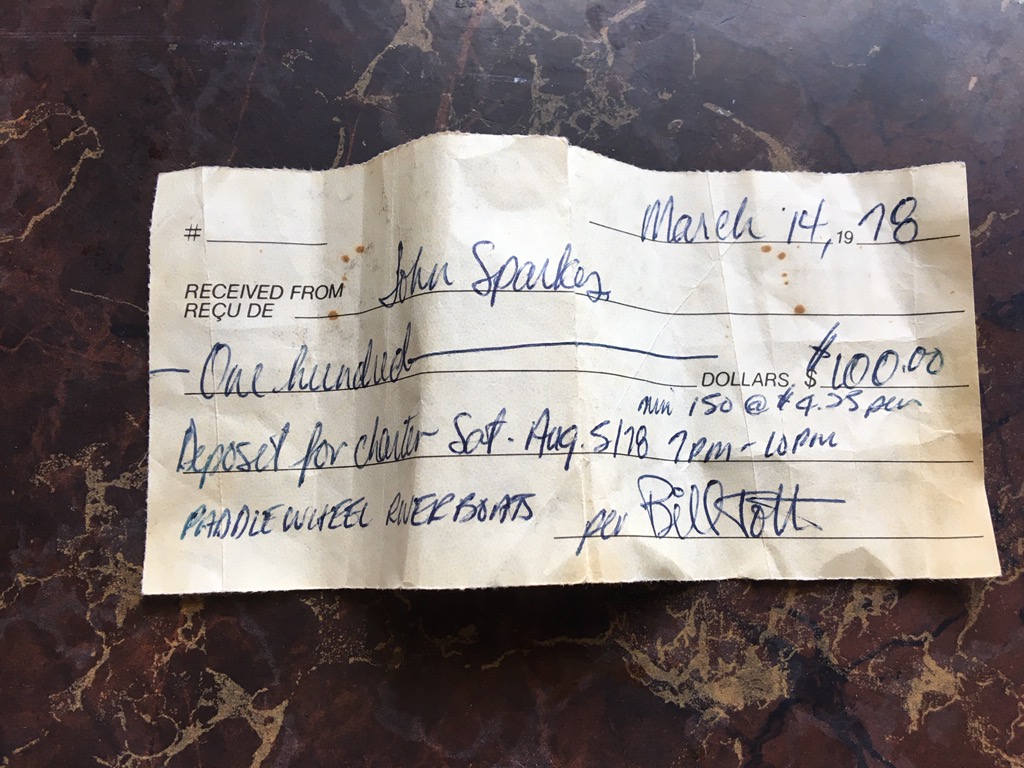 # March 14, 19 78
RECEIVED FROM John Sparkes
REÇU DE
One hundred DOLLARS, $ $100.00
min 150 @ $4.25 per
Deposit for charter Sat. Aug. 5/78 7pm - 10pm
PADDLEWHEEL RIVERBOATS per Bill Stott